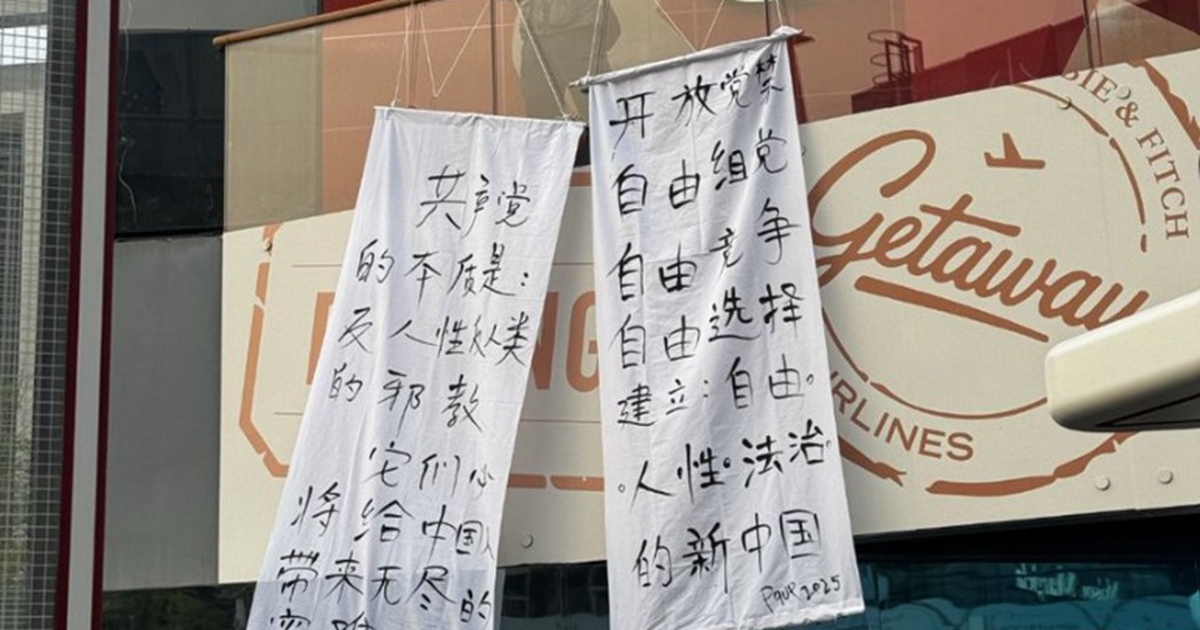 共产党
的本质是:
反人性从人类
的邪教
它们必
将给中国人
带来无尽的
灾难
开放党禁
自由组党
自由竞争
自由选择
建立:自由。
。人性。法治。
的新中国
2025
Getaway
AIRLINES
& FITCH